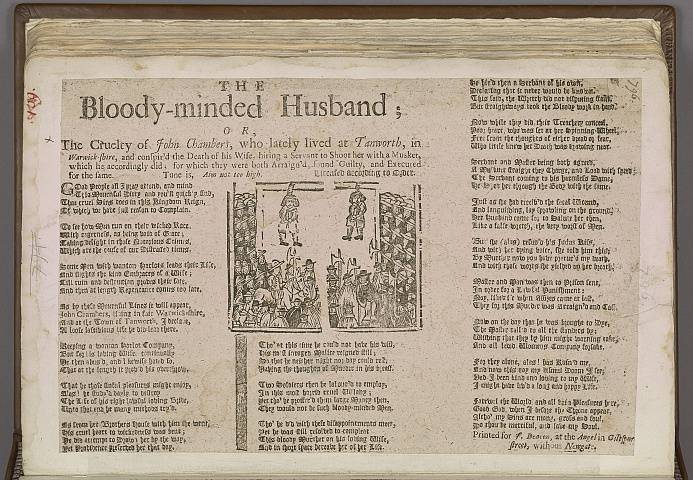 THE
Bloody-minded Husband;
OR,
The Cruelty of John Chambers, who lately lived at Tanworth, in
Warwick-shire, and conspir'd the Death of his Wife, hiring a Servant to Shoot her with a Musket,
which he accordingly did; for which they were both Arraign'd, found Guilty, and Executed
for the same. Tune is, Aim not too high. Licensed according to Order.
GOod People all I pray attend, and mind
This Mournful Ditty and you'll quickly find,
That cruel Sins does in this Kingdom Reign,
Of which we have just reason to Complain.
To see how Men run on their wicked Race,
With eagerness, as being void of Grace;
Taking delight in these Notorious Crimes,
Which are the cause of our Distracted times.
Some Men with wanton Harlots leads their Life,
And slights the kind Embraces of a Wife;
Till ruin and destruction guides their fate,
And then at length Repentance comes too late.
As by these Mournful Lines it will appear,
John Chambers, living in fair Warwick-shire,
And at the Town of Tanworth, I declare,
A loose lascivious life he did lead there.
Keeping a wanton Harlot Company,
But for his loving Wife, continually
He then abus'd, and likewise hard so,
That at the length it prov'd his overthrow.
That he these sinful pleasures might enjoy,
Alas! he study'd daily to destroy
The Life of his right lawful loving Wife,
Unto that end he many mischiefs try'd.
As from her Brothers House with him she went,
His cruel heart to wickedness was bent;
He did attempt to Poison her by the way,
Yet Providence Preserved her that day.
Tho' at this time he could not have his will,
His most inraged Malice reigned still;
So that he neither night nor day could rest,
Having the thoughts of Murder in his breast.
Two Soldiers then he labour'd to employ,
In this most horrid cruel Villany;
Yet tho' he proffer'd them large Money then,
They would not be such bloody-minded Men.
Tho' he did with these disappointments meet,
Yet he was still resolved to compleat
This bloody Murther on his loving Wife,
And in short space bereave her of her Life.
He hir'd then a Servant of his own,
Declaring that it never would be known.
This said, the Wretch did not disputing stand,
But straightways took the bloody work in hand.
Now while they did their Treachery conceal,
Poor heart, who was set at her Spinning-Wheel,
Free from the thoughts of either dread or fear,
Who little knew her Death was drawing near.
Servant and Master being both agreed,
A Musquet straight they Charge, and Load with speed
The Servant coming to his harmless Dame,
He Shot her through the Body with the same.
Just as she had receiv'd the fatal Wound,
And languishing, lay sprawling on the ground;
Her Husband came for to Salute her then,
Like a false wretch, the very worst of Men.
But she (alas) refus'd his Judas Kiss,
And with her dying voice, she told him this;
By Murther now you have procur'd my death,
And with those words she yielded up her breath.
Master and Man was then to Prison sent,
In order for a Lawful Punishment;
Nay, likewise when Assizes came at last,
They for this Murder was Arraign'd and Cast.
Now on the day that he was brought to Dye,
The Master call'd to all the standers by;
Wishing that they by him might warning take,
And all lewd Womens Company forsake.
For they alone, alas! has Ruin'd me,
And now this day my dismal Doom I see;
Had I been kind and loving to my Wife,
I might have liv'd a long and happy Life.
Farewel the World and all vain Pleasures here,
Good God, when I before thy Throne appear,
Altho' my Sins are many, gross and foul,
Yet thou be merciful, and save my Soul.
Printed for J. Deacon, at the Angel in Giltspur-
street, without Newgate.